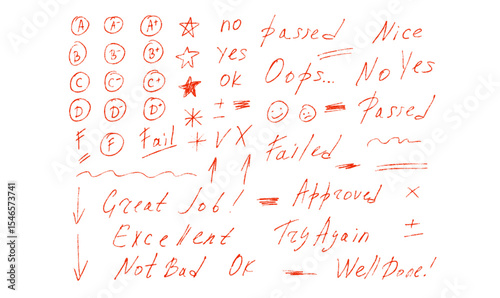 A A- A+ no passed Nice
B B- B+ yes Oops... No Yes
C C- C+ ok
D D- D+ ± = = Passed
F F Fail + V X Failed
Great Job! = Approved ×
Excellent Try Again ±
Not Bad OK = Well Done!
Adobe Stock | #1546573741